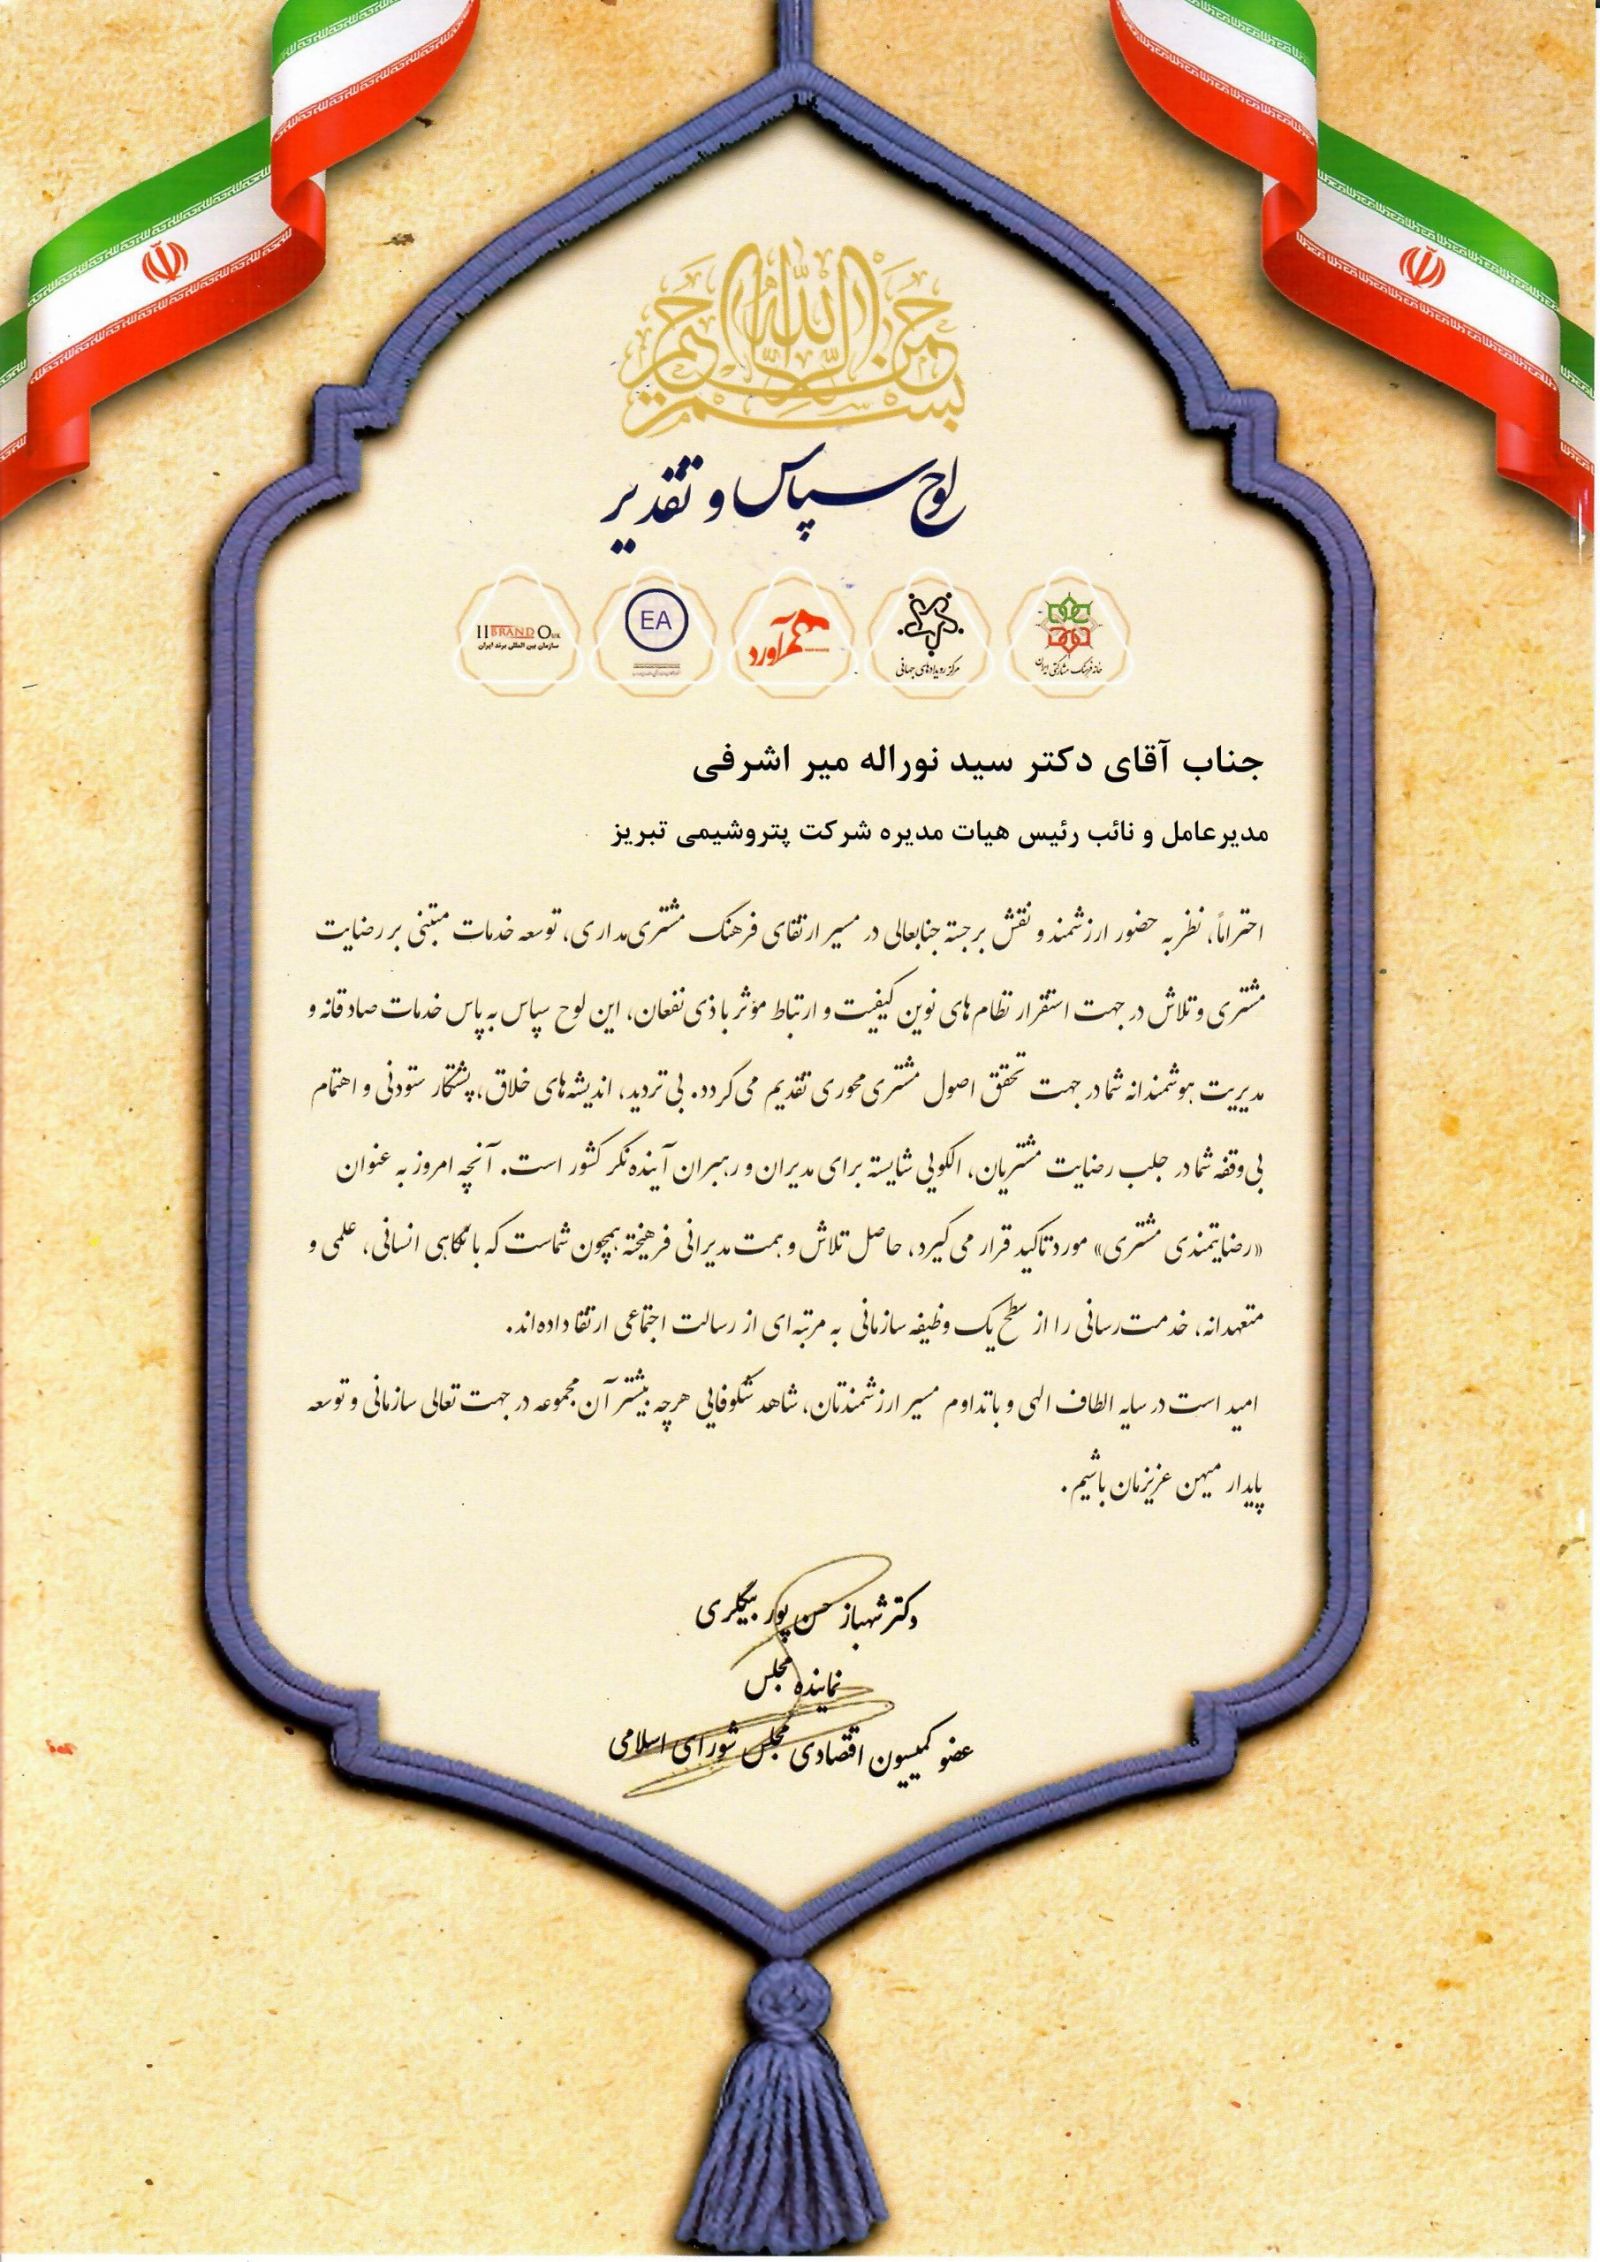 بسم الله الرحمن الرحیم
لوح سپاس و تقدیر
خانه فرهنگ مشارکتی ایران
مرکز رویدادهای جهانی
هم‌آورد
EA
IIBRAND
سازمان بین المللی برند ایران
جناب آقای دکتر سید نوراله میر اشرفی
مدیرعامل و نائب رئیس هیات مدیره شرکت پتروشیمی تبریز
احتراماً، نظر به حضور ارزشمند و نقش برجسته جنابعالی در مسیر ارتقای فرهنگ مشتری‌مداری، توسعه خدمات مبتنی بر رضایت
مشتری و تلاش در جهت استقرار نظام‌های نوین کیفیت و ارتباط مؤثر با ذی‌نفعان، این لوح سپاس به پاس خدمات صادقانه و
مدیریت هوشمندانه شما در جهت تحقق اصول مشتری‌محوری تقدیم می‌گردد. بی تردید، اندیشه‌های خلاق، پشتکار ستودنی و اهتمام
بی‌وقفه شما در جلب رضایت مشتریان، الگویی شایسته برای مدیران و رهبران آینده‌نگر کشور است. آنچه امروز به عنوان
«رضایتمندی مشتری» مورد تاکید قرار می‌گیرد، حاصل تلاش و همت مدیرانی فرهیخته همچون شماست که با نگاهی انسانی، علمی و
متعهدانه، خدمت‌رسانی را از سطح یک وظیفه سازمانی به مرتبه‌ای از رسالت اجتماعی ارتقا داده‌اند.
امید است در سایه الطاف الهی و با تداوم مسیر ارزشمندتان، شاهد شکوفایی هرچه بیشتر آن مجموعه در جهت تعالی سازمانی و توسعه
پایدار میهن عزیزمان باشیم.
دکتر شهباز حسن پور بیگلری
نماینده مجلس
عضو کمیسیون اقتصادی مجلس شورای اسلامی